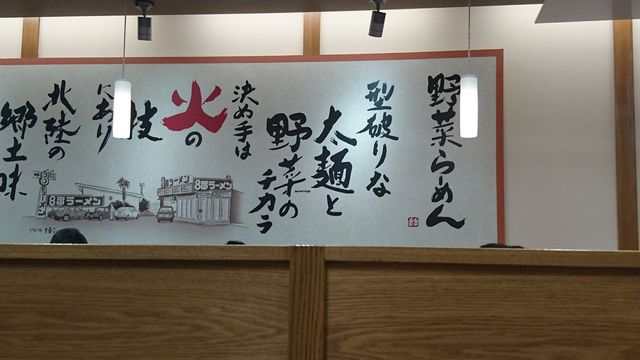 野菜らーめん
型破りな
太麺と
野菜の
チカラ
決め手は
火の
技
にあり
北陸の
郷土味
8番ラーメン
8番ラーメン